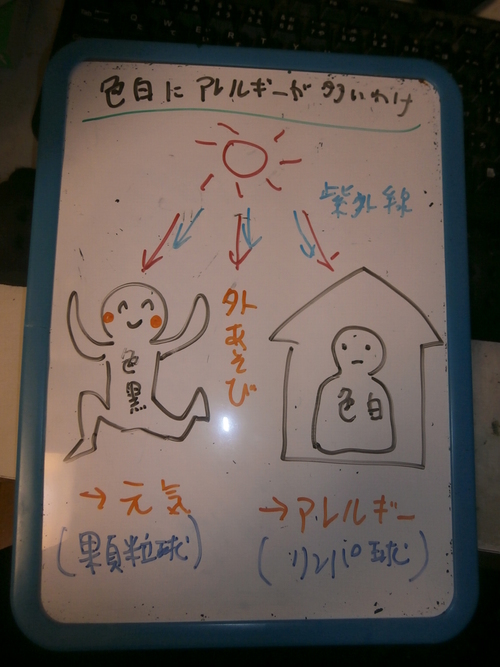 色白にアレルギーが多いわけ
紫外線
外あそび
色黒
色白
→元気
(顆粒球)
→アレルギー
(リンパ球)